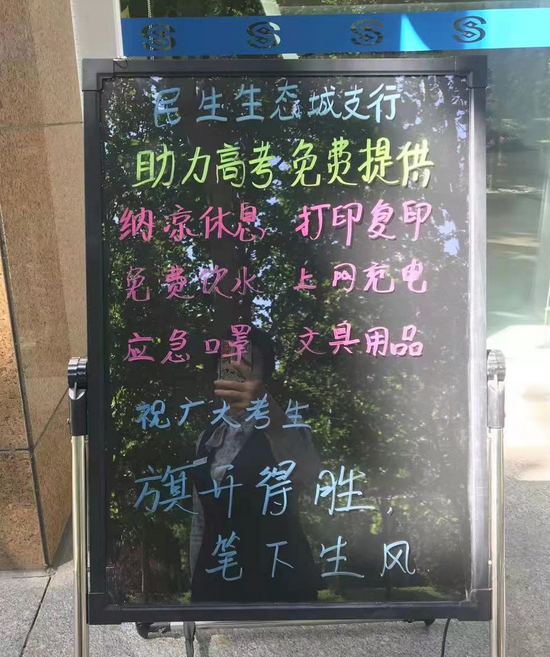 民生生态城支行
助力高考免费提供
纳凉休息 打印复印
免费饮水 上网充电
应急口罩 文具用品
祝广大考生
旗开得胜，
笔下生风